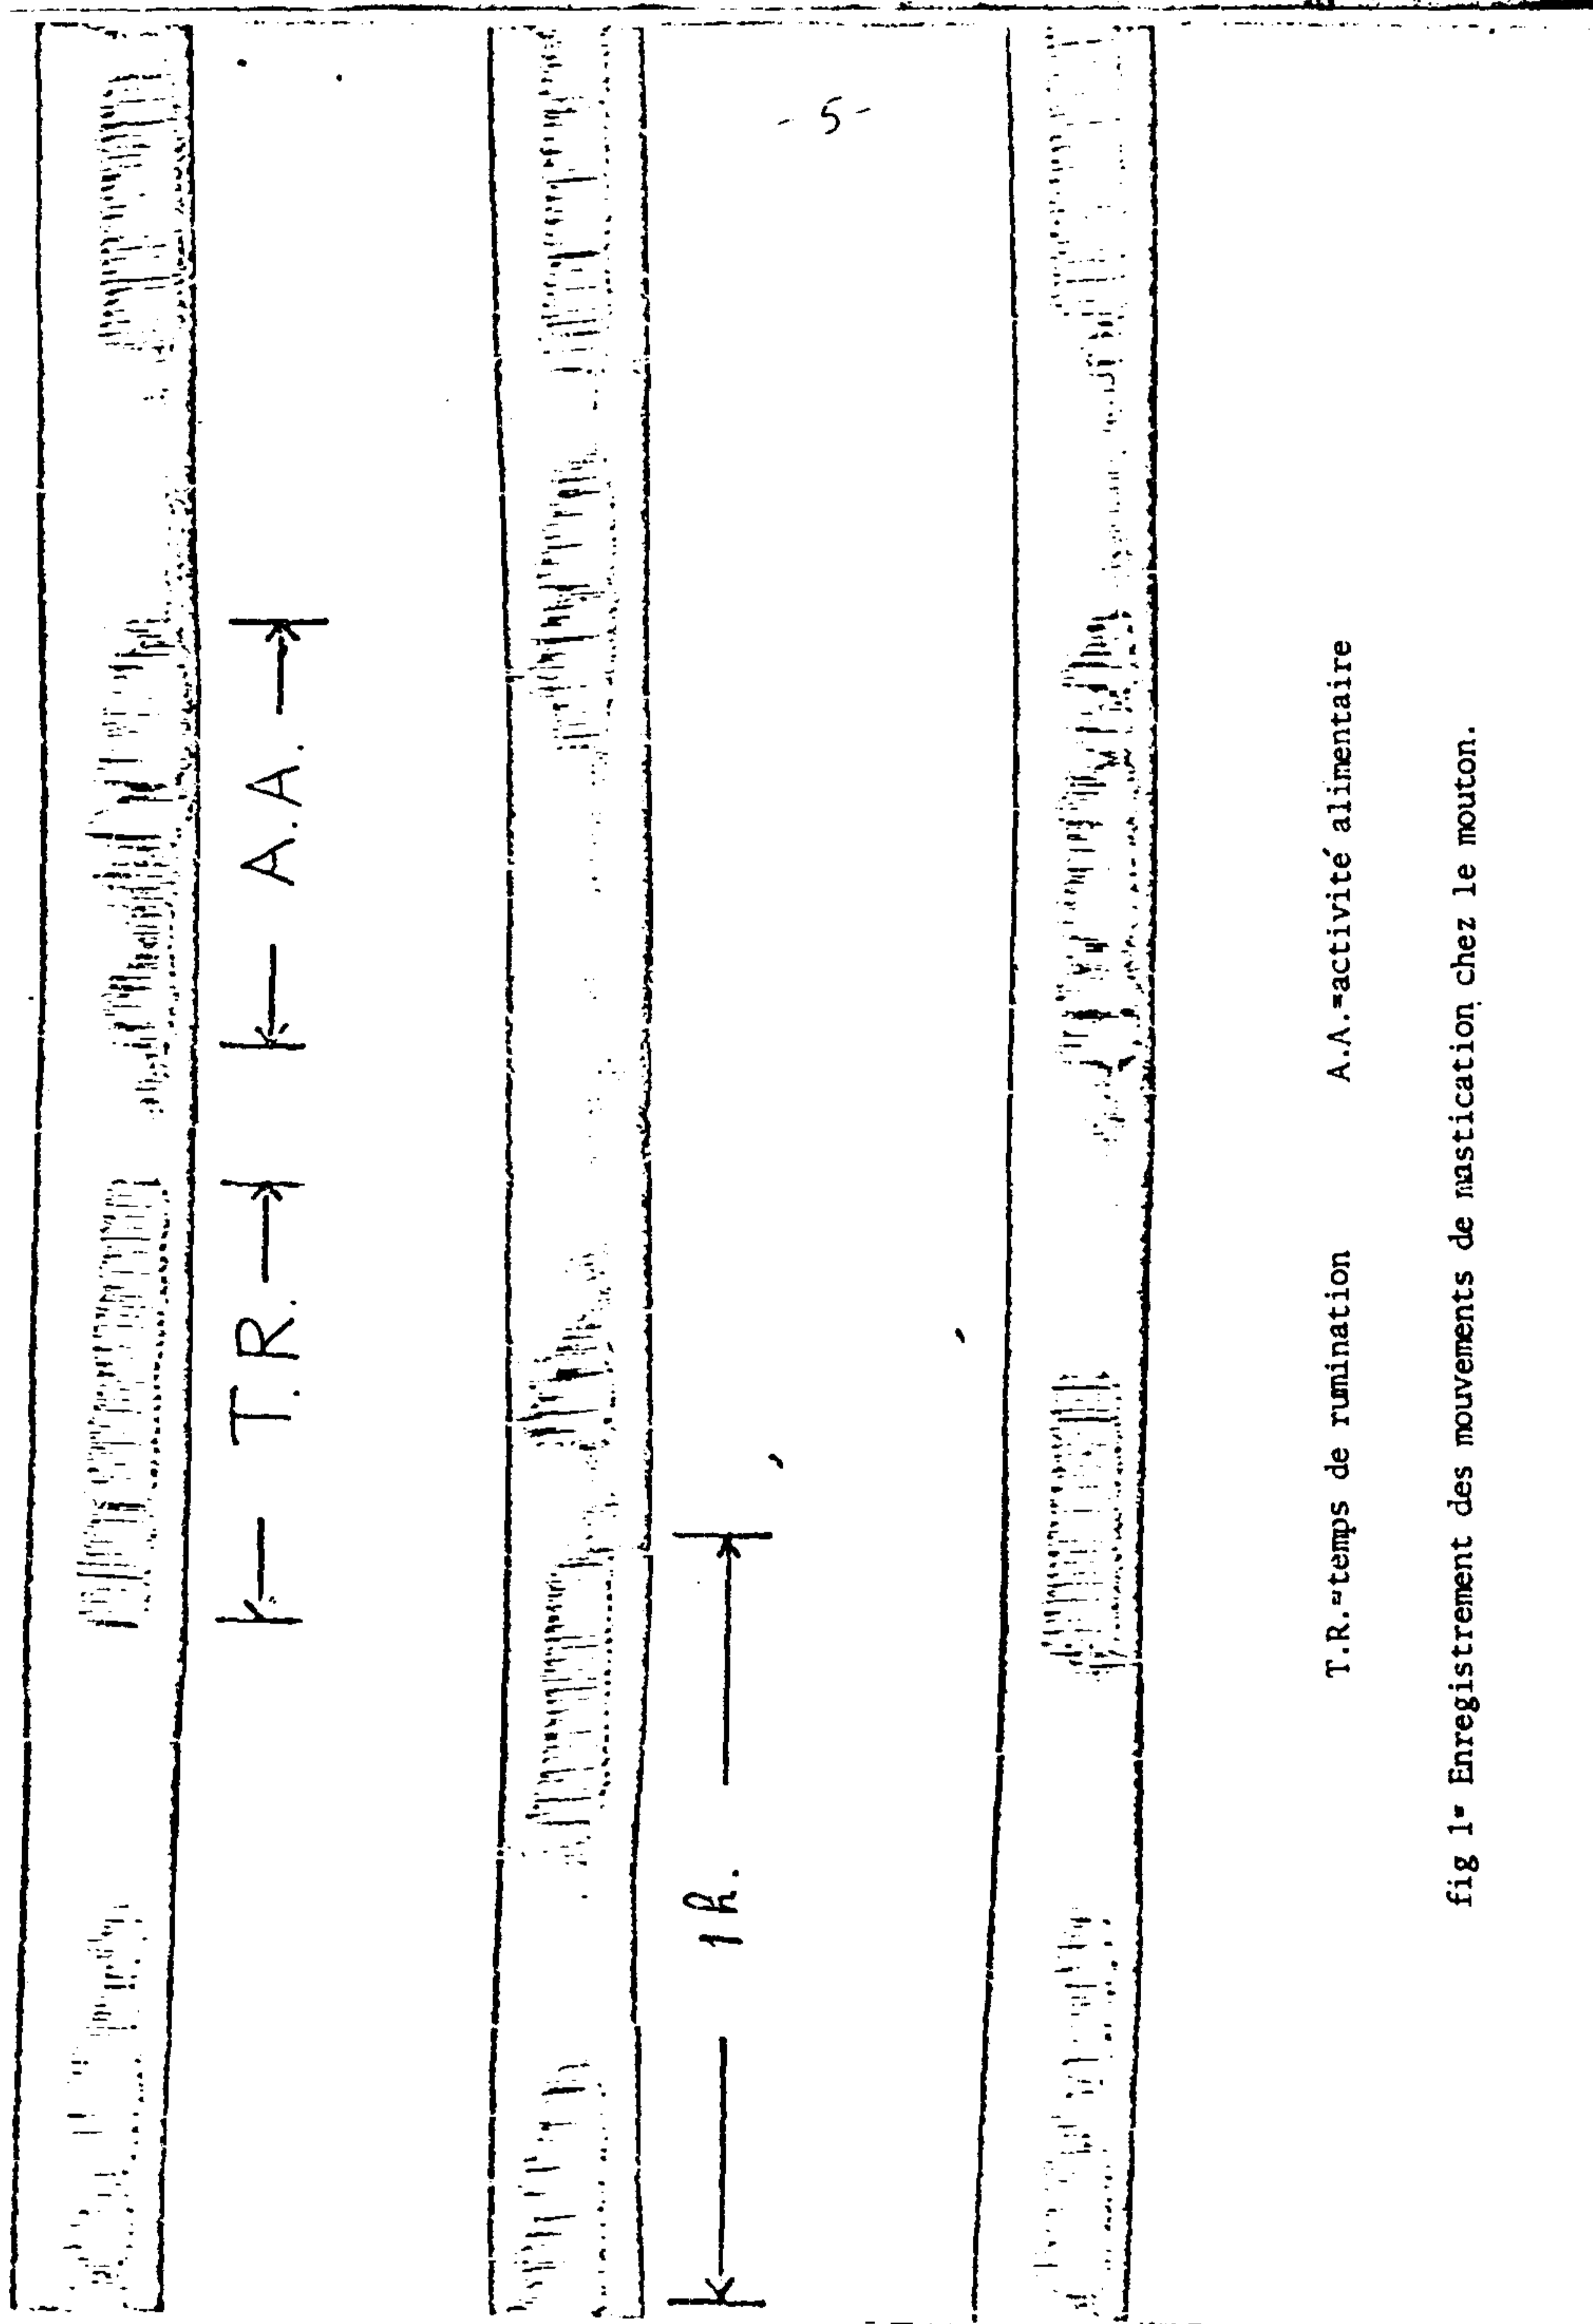 - 5 -
T.R. A.A.
1 h.
T.R.=temps de rumination A.A.=activité alimentaire
fig 1= Enregistrement des mouvements de mastication chez le mouton.